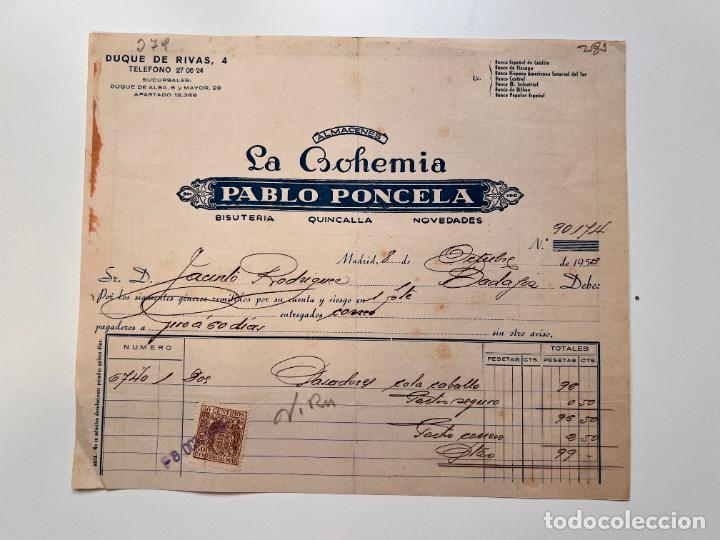 379
283
DUQUE DE RIVAS, 4
TELEFONO 27 06 24
SUCURSALES:
DUQUE DE ALBA, 6 y MAYOR, 28
APARTADO 12.368
C/c.
Banco Español de Crédito
Banco de Vizcaya
Banco Hispano Americano Sucursal del Sur
Banco Central
Banco M. Industrial
Banco de Bilbao
Banco Popular Español
ALMACENES
La Bohemia
PABLO PONCELA
BISUTERIA QUINCALLA NOVEDADES
N.º 90174
Madrid, 8 de Octubre de 195
Sr. D. Jacinto Rodriguez Badajoz Debe:
Por los siguientes géneros remitidos por su cuenta y riesgo en 1 pte
entregados correo
pagaderos a giro á 60 dias sin otro aviso.
NUMERO TOTALES
PESETAS CTS. PESETAS CTS.
6740 1 Dos Pasadores cola caballo 96
Gastos seguro 0 50
96 50
Gasto correo 2 50
99 -
50 CENTIMOS
-8 OCT
NOTA: No se admiten devoluciones pasados quince días.
todocoleccion
todocoleccion.net